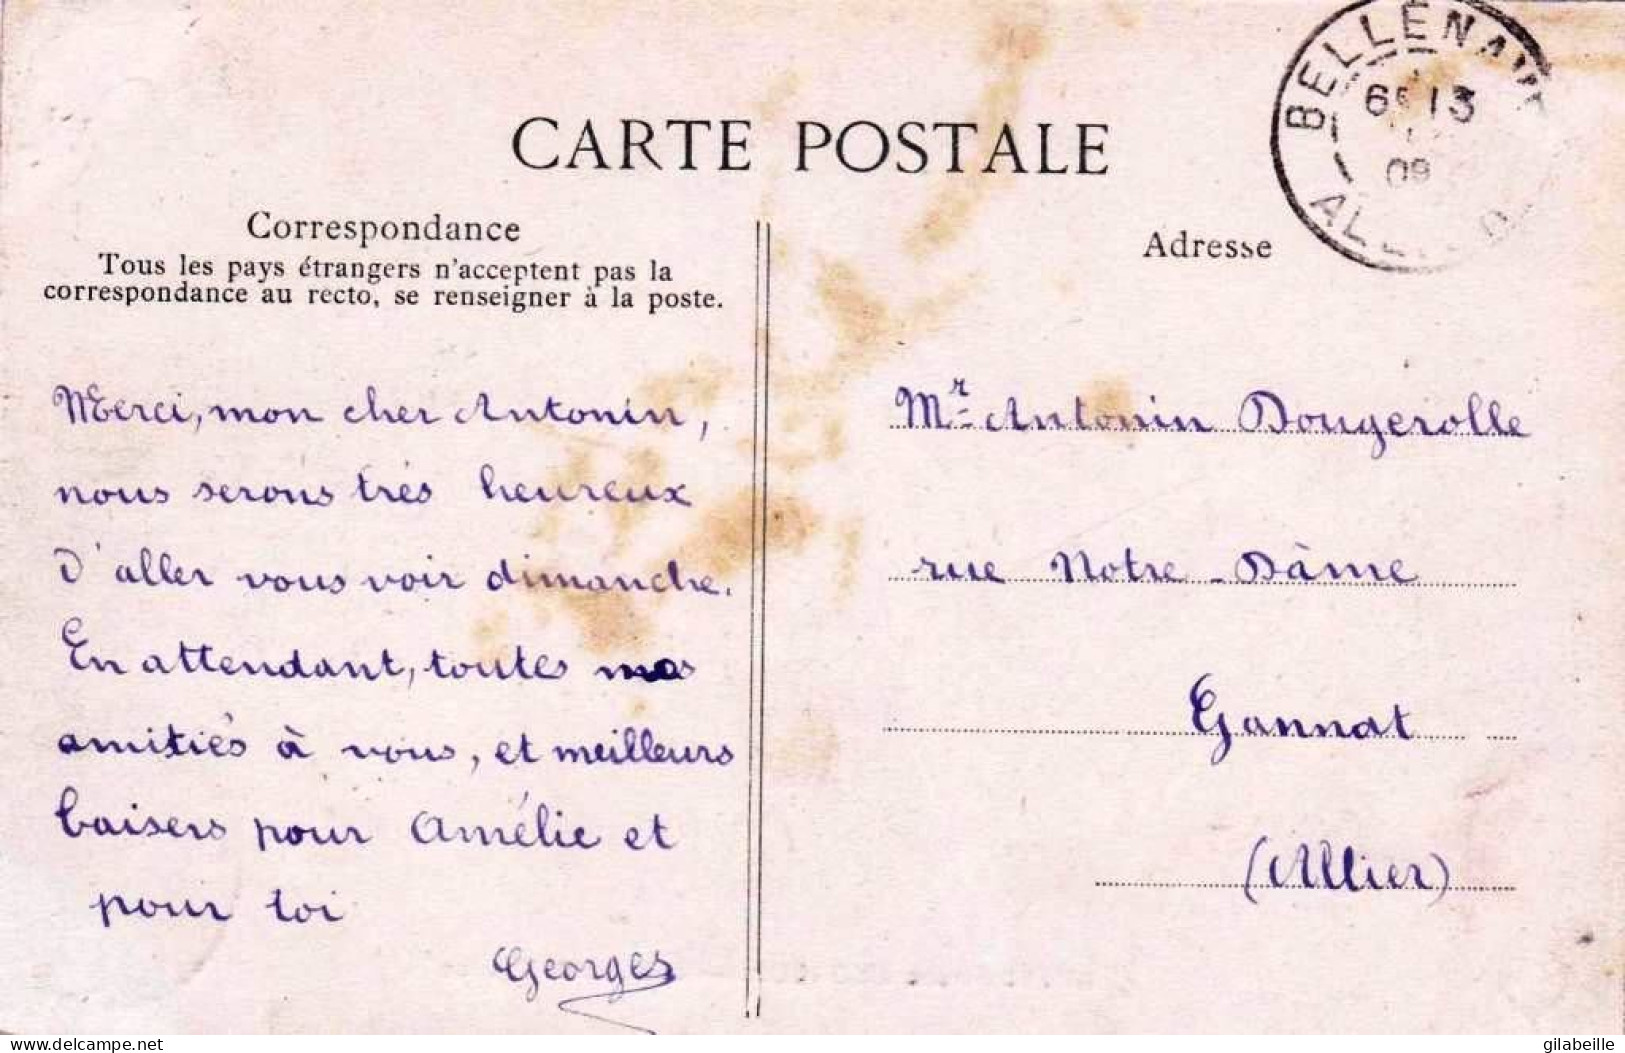 CARTE POSTALE
Correspondance
Tous les pays étrangers n'acceptent pas la
correspondance au recto, se renseigner à la poste.
Merci, mon cher Antonin,
nous serons très heureux
d'aller vous voir dimanche.
En attendant, toutes mes
amitiés à vous, et meilleurs
baisers pour Amélie et
pour toi
Georges
Adresse
BELLENAV
13
09
AL
Mr Antonin Dougerolle
rue Notre-Dâme
Gannat
(Allier)
delcampe.net
gilabeille